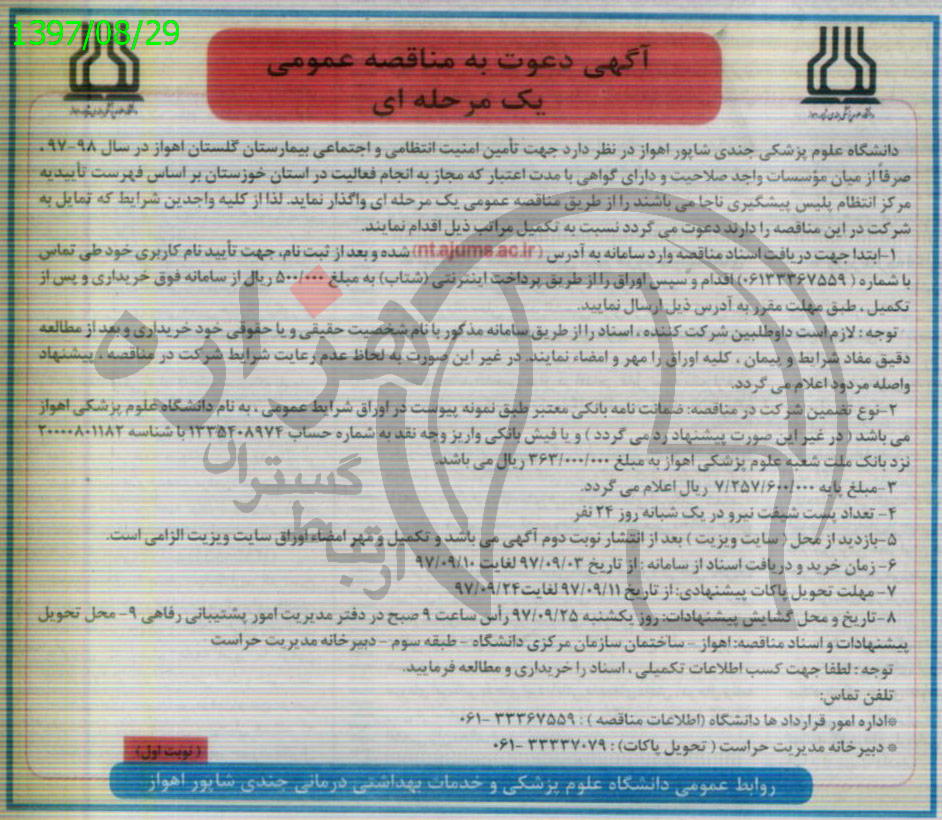 1397/08/29
آگهی دعوت به مناقصه عمومی
یک مرحله ای
دانشگاه علوم پزشکی جندی شاپور اهواز در نظر دارد جهت تأمین امنیت انتظامی و اجتماعی بیمارستان گلستان اهواز در سال ۹۸-۹۷ ،
صرفاً از میان مؤسسات واجد صلاحیت و دارای گواهی با مدت اعتبار که مجاز به انجام فعالیت در استان خوزستان بر اساس فهرست تأییدیه
مرکز انتظام پلیس پیشگیری ناجا می باشند را از طریق مناقصه عمومی یک مرحله ای واگذار نماید. لذا از کلیه واجدین شرایط که تمایل به
شرکت در این مناقصه را دارند دعوت می گردد نسبت به تکمیل مراتب ذیل اقدام نمایند.
۱-ابتدا جهت دریافت اسناد مناقصه وارد سامانه به آدرس (nt.ajums.ac.ir) شده و بعد از ثبت نام، جهت تأیید نام کاربری خود طی تماس
با شماره ( ۰۶۱۳۳۳۶۷۵۵۹) اقدام و سپس اوراق را از طریق پرداخت اینترنتی (شتاب) به مبلغ ۵۰۰/۰۰۰ ریال از سامانه فوق خریداری و پس از
تکمیل ، طبق مهلت مقرر به آدرس ذیل ارسال نمایید.
توجه : لازم است داوطلبین شرکت کننده ، اسناد را از طریق سامانه مذکور با نام شخصیت حقیقی و یا حقوقی خود خریداری و بعد از مطالعه
دقیق مفاد شرایط و پیمان ، کلیه اوراق را مهر و امضاء نمایند. در غیر این صورت به لحاظ عدم رعایت شرایط شرکت در مناقصه ، پیشنهاد
واصله مردود اعلام می گردد.
۲-نوع تضمین شرکت در مناقصه: ضمانت نامه بانکی معتبر طبق نمونه پیوست در اوراق شرایط عمومی ، به نام دانشگاه علوم پزشکی اهواز
می باشد ( در غیر این صورت پیشنهاد رد می گردد ) و یا فیش بانکی واریز وجه نقد به شماره حساب ۱۳۳۵۴۰۸۹۷۴ با شناسه ۲۰۰۰۰۸۰۱۱۸۲
نزد بانک ملت شعبه علوم پزشکی اهواز به مبلغ ۳۶۳/۰۰۰/۰۰۰ ریال می باشد.
۳-مبلغ پایه ۷/۲۵۷/۶۰۰/۰۰۰ ریال اعلام می گردد.
۴- تعداد پست شیفت نیرو در یک شبانه روز ۲۴ نفر
۵-بازدید از محل ( سایت ویزیت ) بعد از انتشار نوبت دوم آگهی می باشد و تکمیل و مهر امضاء اوراق سایت ویزیت الزامی است.
۶- زمان خرید و دریافت اسناد از سامانه : از تاریخ ۹۷/۰۹/۰۳ لغایت ۹۷/۰۹/۱۰
۷- مهلت تحویل پاکات پیشنهادی: از تاریخ ۹۷/۰۹/۱۱ لغایت۹۷/۰۹/۲۴
۸-تاریخ و محل گشایش پیشنهادات: روز یکشنبه ۹۷/۰۹/۲۵ رأس ساعت ۹ صبح در دفتر مدیریت امور پشتیبانی رفاهی ۹- محل تحویل
پیشنهادات و اسناد مناقصه: اهواز - ساختمان سازمان مرکزی دانشگاه - طبقه سوم - دبیرخانه مدیریت حراست
توجه : لطفا جهت کسب اطلاعات تکمیلی ، اسناد را خریداری و مطالعه فرمایید.
تلفن تماس:
*اداره امور قرارداد ها دانشگاه (اطلاعات مناقصه ) : ۳۳۳۶۷۵۵۹ -۰۶۱
* دبیرخانه مدیریت حراست ( تحویل پاکات) : ۳۳۳۳۷۰۷۹ -۰۶۱
( نوبت اول)
روابط عمومی دانشگاه علوم پزشکی و خدمات بهداشتی درمانی جندی شاپور اهواز
هزاره
گسترال
ارتباط